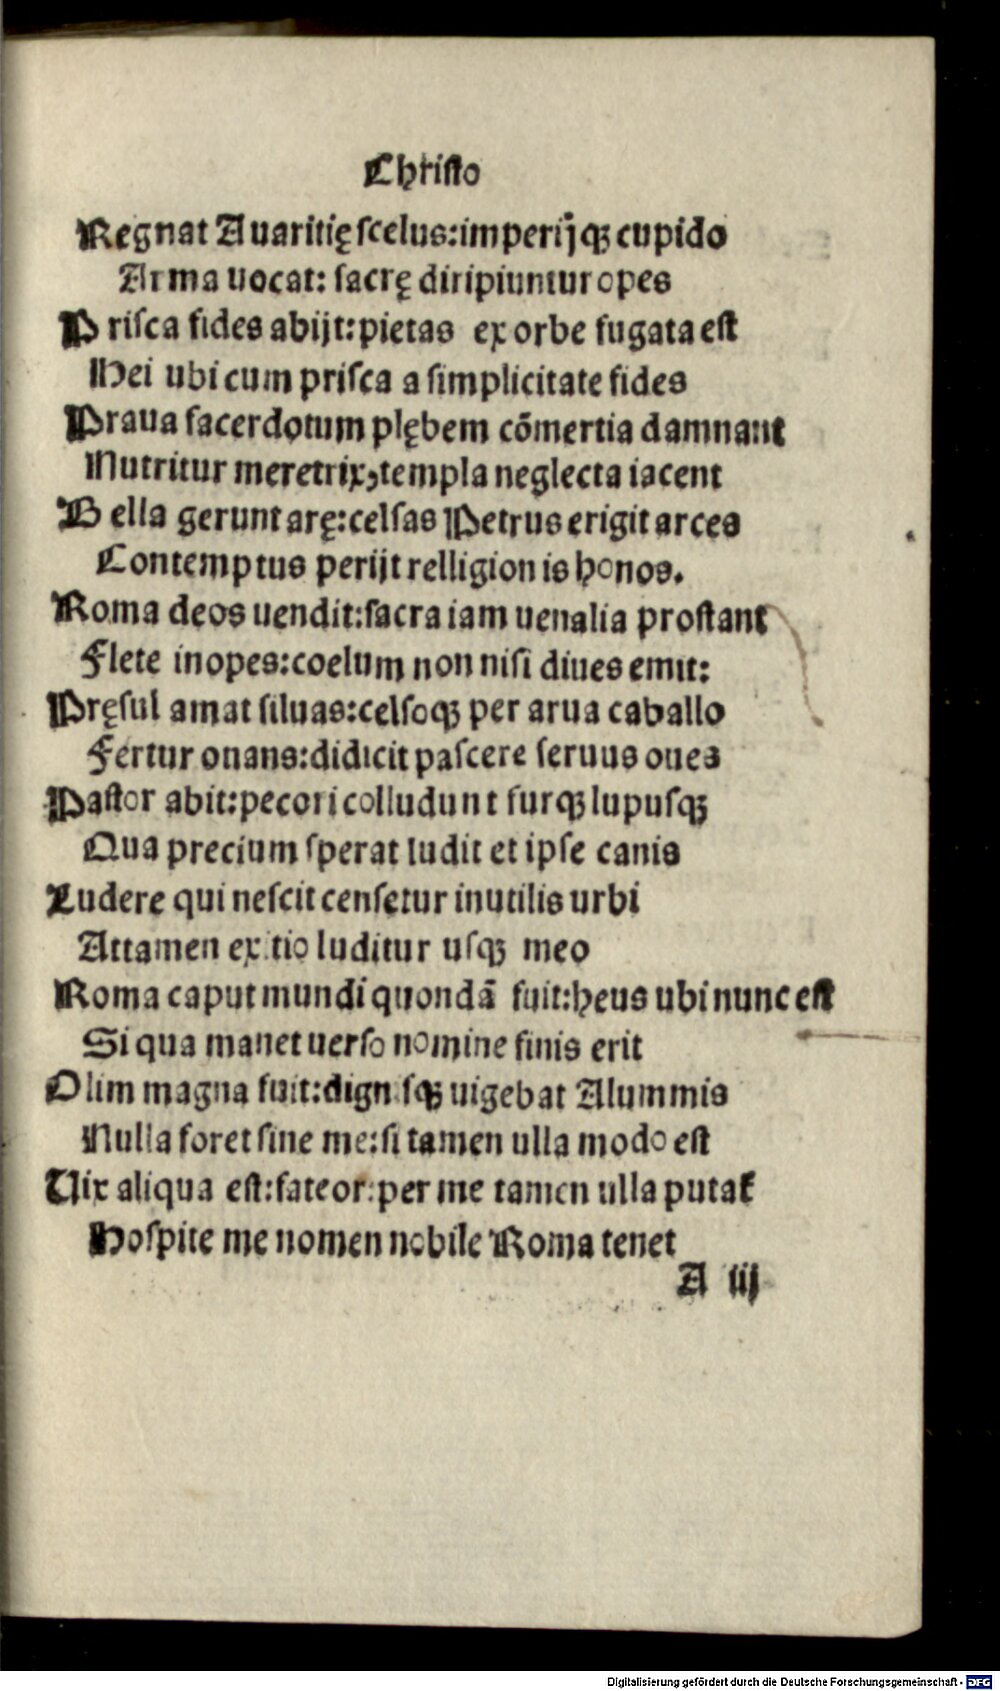 Christo
Regnat Auaritię scelus:imperijqꝫ cupido
Arma uocat: sacrę diripiuntur opes
Prisca fides abijt:pietas ex orbe fugata est
Hei ubi cum prisca a simplicitate fides
Praua sacerdotum plębem cõmertia damnant
Nutritur meretrix,templa neglecta iacent
Bella gerunt arę:celsas Petrus erigit arces
Contemptus perijt relligionis honos.
Roma deos uendit:sacra iam uenalia prostant
Flete inopes:coelum non nisi diues emit:
Pręsul amat siluas:celsoqꝫ per arua caballo
Fertur ouans:didicit pascere seruus oues
Pastor abit:pecori colludunt furqꝫ lupusqꝫ
Qua precium sperat ludit et ipse canis
Ludere qui nescit censetur inutilis urbi
Attamen ex.tio luditur usqꝫ meo
Roma caput mundi quondã fuit:heus ubi nunc est
Si qua manet uerso nomine finis erit
Olim magna fuit:dign sqꝫ uigebat Alummis
Nulla foret sine me:si tamen ulla modo est
Vix aliqua est:fateor:per me tamen ulla putaꝶ
Hospite me nomen nobile Roma tenet
A iij
Digitalisierung gefördert durch die Deutsche Forschungsgemeinschaft - DFG